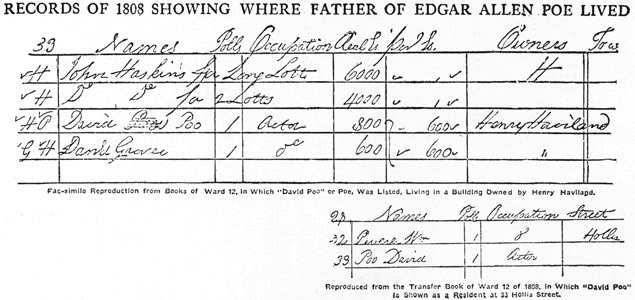 RECORDS OF 1808 SHOWING WHERE FATHER OF EDGAR ALLEN POE LIVED
33 Names Polls Occupation Real Es Per Es. Owners Tow
H John Haskins for Long Lotts 6000 H
H Do Do for 2 Lotts 4000
H David Poo 1 Actor 800 600 Henry Haviland
G H Daniel Graves 1 do 600 600 "
Fac-simile Reproduction from Books of Ward 12, in Which "David Poo" or Poe, Was Listed, Living in a Building Owned by Henry Haviland.
28 Names Polls Occupation Street
32 Wm 1 Hollis
33 Poo David 1 Actor
Reproduced from the Transfer Book of Ward 12 of 1808, in Which "David Poo"
is Shown as a Resident at 33 Hollis Street.